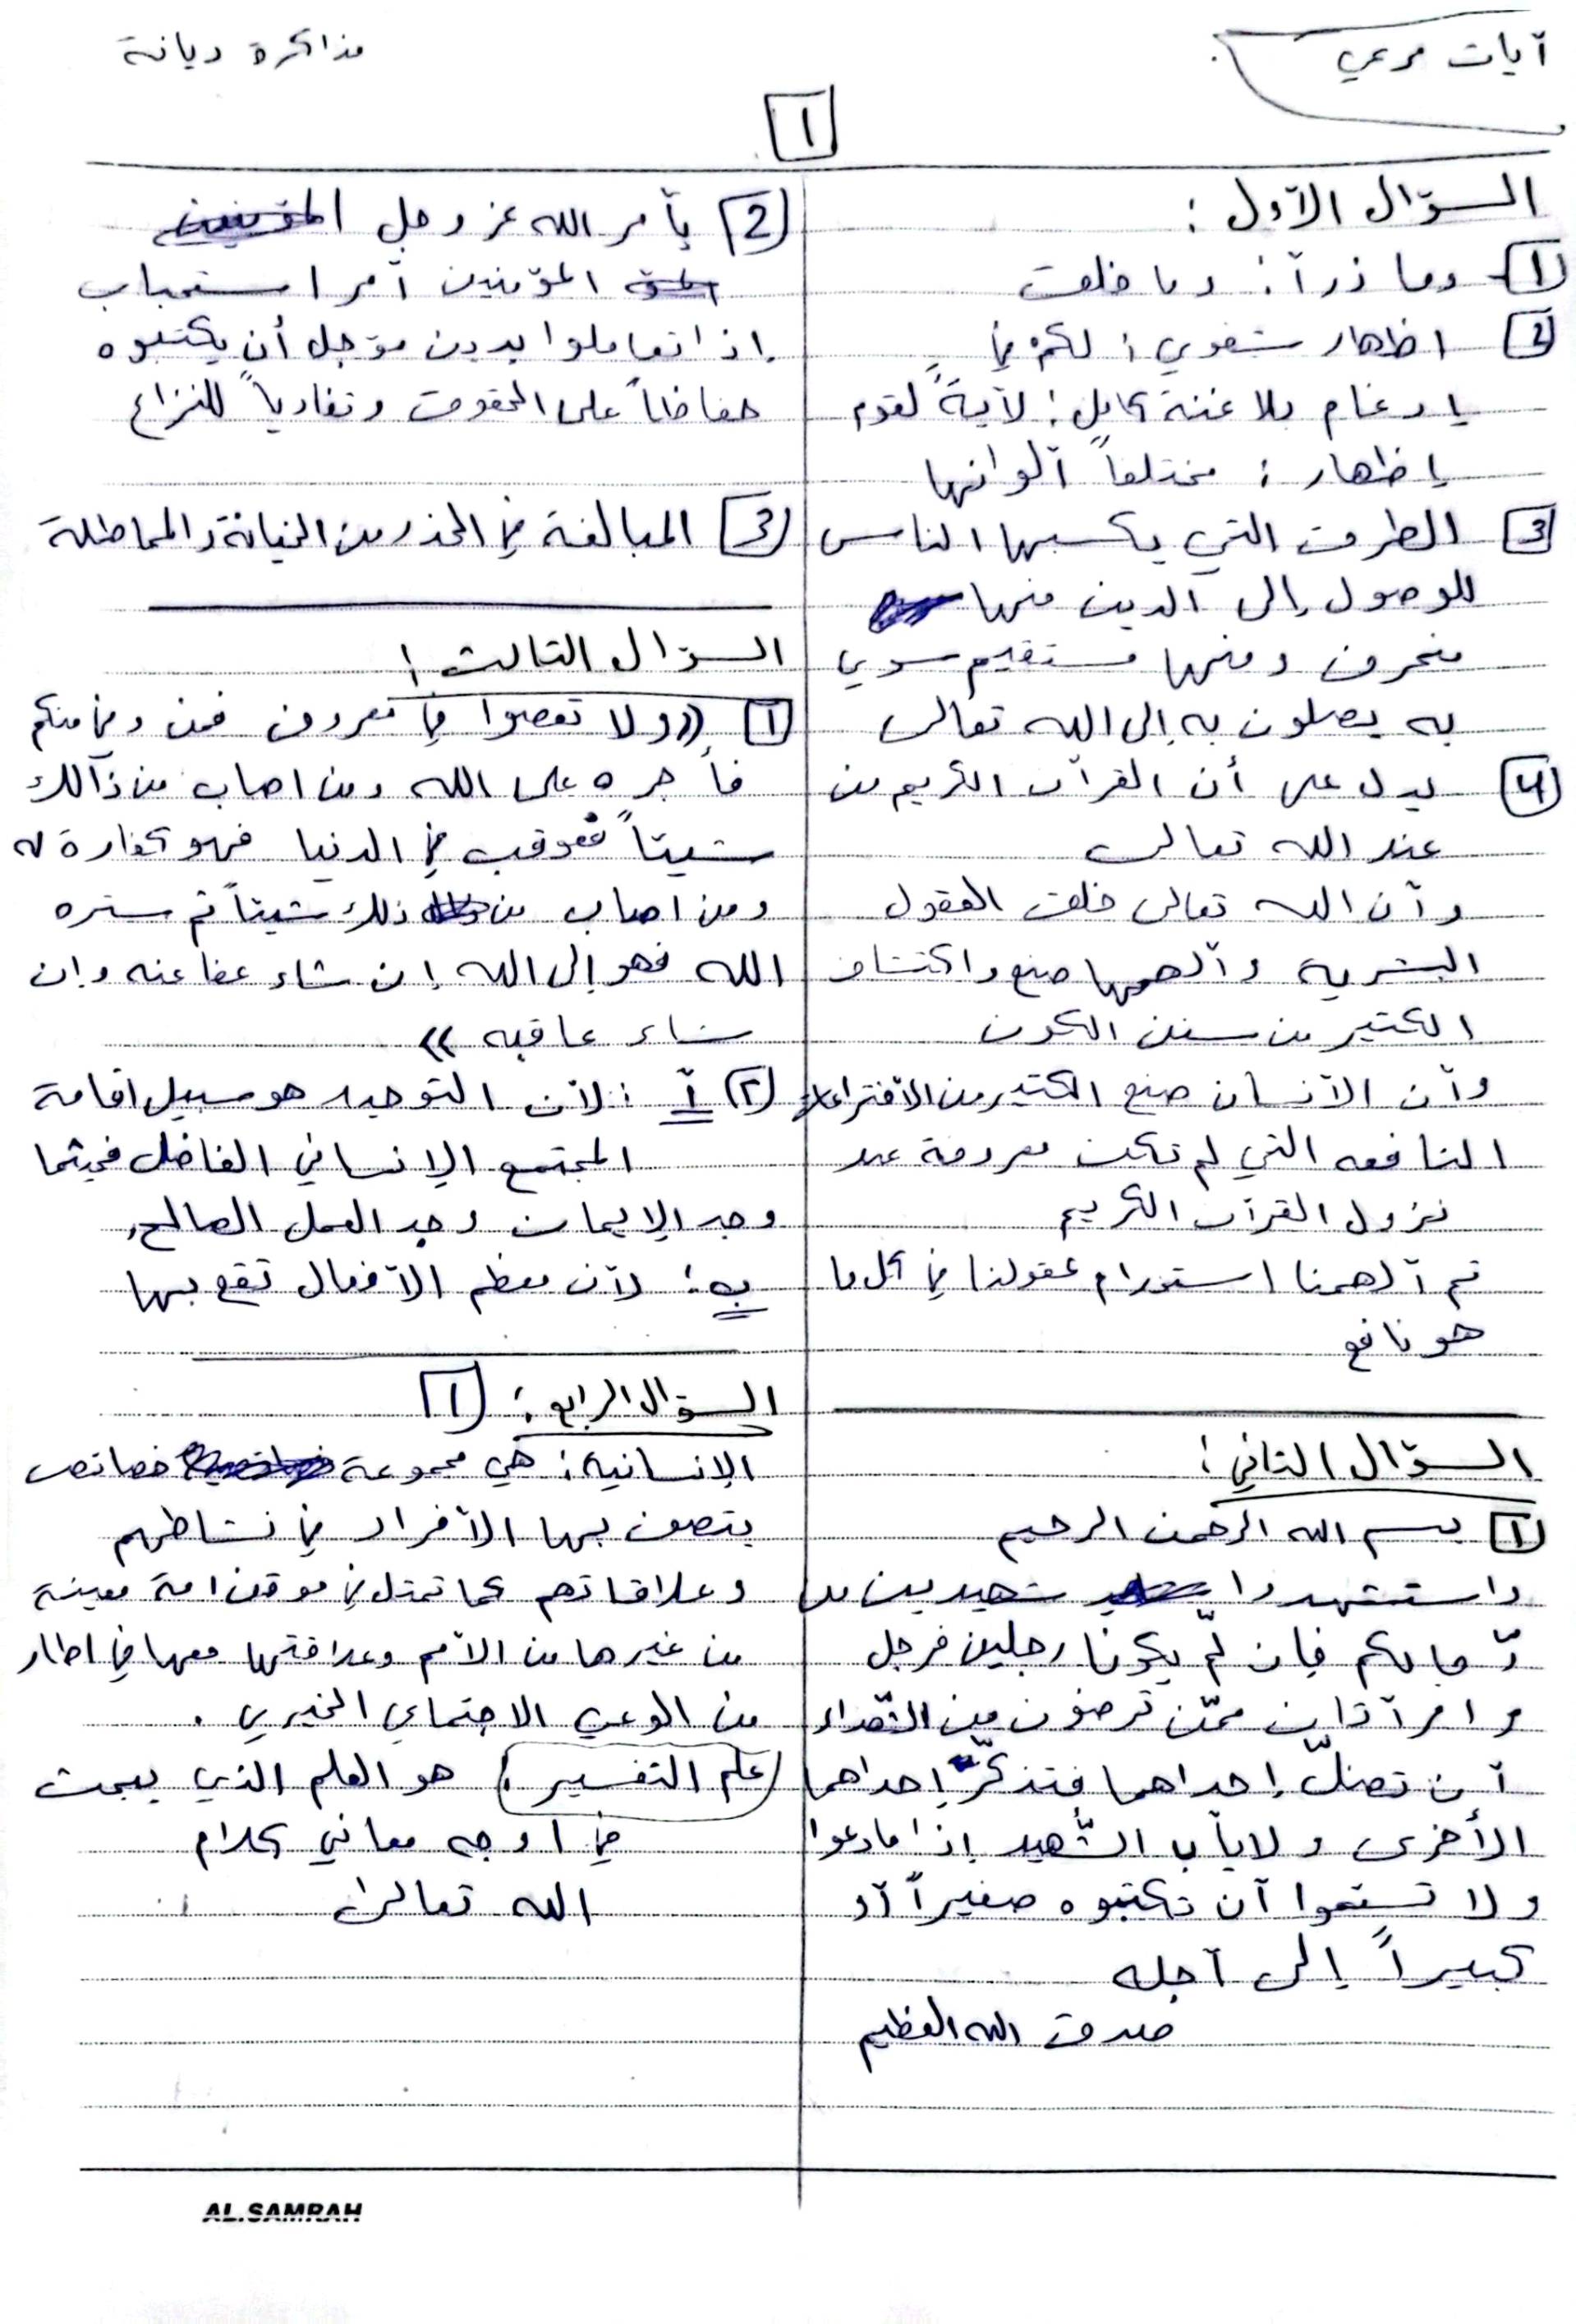 آيات مرعي
مذاكرة ديانة
1
السؤال الأول :
1 وما ذرأ : وما خلق
2 اظهار شفوي : لكمْ فِي
إدغام بلا غنة كامل : لآيةً لقوم
إظهار : مختلفاً ألوانها
3 الطرق التي يكسبها الناس
للوصول إلى الدين منها
منحرف ومنها مستقيم سوي
به يصلون به إلى الله تعالى
4 يدل على أن القرآن الكريم من
عند الله تعالى
وأن الله تعالى خلق العقول
البشرية وألهمها صنع واكتشاف
الكثير من سنن الكون
وأن الأنسان صنع الكثير من الأختراعات
النافعه التي لم تكن معروفة عند
نزول القرآن الكريم
ثم ألهمنا استخدام عقولنا في كل ما
هو نافع
السؤال الثاني :
1 بسم الله الرحمن الرحيم
واستشهدوا شهيدين من
رّجالكم فإن لّم يكونا رجلين فرجل
و امرأتان ممّن ترضون من الشّهداء
أن تضلّ إحداهما فتذكّر إحداهما
الأخرى ولا يأب الشّهيد إذا ما دعوا
ولا تسئموا أن تكتبوه صغيراً أو
كبيراً إلى أجله
صدق الله العظيم
2 يأمر الله عز وجل
المؤمنين أمر استحباب
إذا تعاملوا بدين مؤجل أن يكتبوه
حفاظاً على الحقوق وتفادياً للنزاع
3 المبالغة في الحذر من الخيانة والمماطلة
السؤال الثالث :
1 ((ولا تعصوا في معروف فمن وفى منكم
فأجره على الله ومن اصاب من ذالك
شيئاً فعوقب في الدنيا فهو كفارة له
ومن اصاب من ذلك شيئاً ثم ستره
الله فهو إلى الله إن شاء عفا عنه وإن
شاء عاقبه ))
2 أ : لأن التوحيد هو سبيل اقامة
المجتمع الإنساني الفاضل فحيثما
وجد الإيمان وجد العمل الصالح.
ب : لأن معظم الأفعال تقع بها
السؤال الرابع : 1
الإنسانية : هي مجموعة خصائص
يتصف بها الأفراد في نشاطهم
وعلاقاتهم كما تمثل في موقف امة معينة
من غيرها من الأمم وعلاقتها معها في اطار
من الوعي الاجتماعي الخيري .
علم التفسير : هو العلم الذي يبحث
في اوجه معاني كلام
الله تعالى
AL.SAMRAH